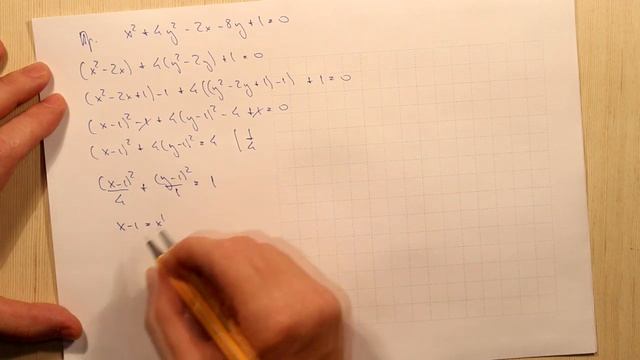 Пр. x² + 4y² - 2x - 8y + 1 = 0
(x² - 2x) + 4(y² - 2y) + 1 = 0
(x² - 2x + 1) - 1 + 4((y² - 2y + 1) - 1) + 1 = 0
(x-1)² - 1 + 4(y-1)² - 4 + 1 = 0
(x-1)² + 4(y-1)² = 4 | 1/4
(x-1)²/4 + (y-1)²/1 = 1
x - 1 = x'